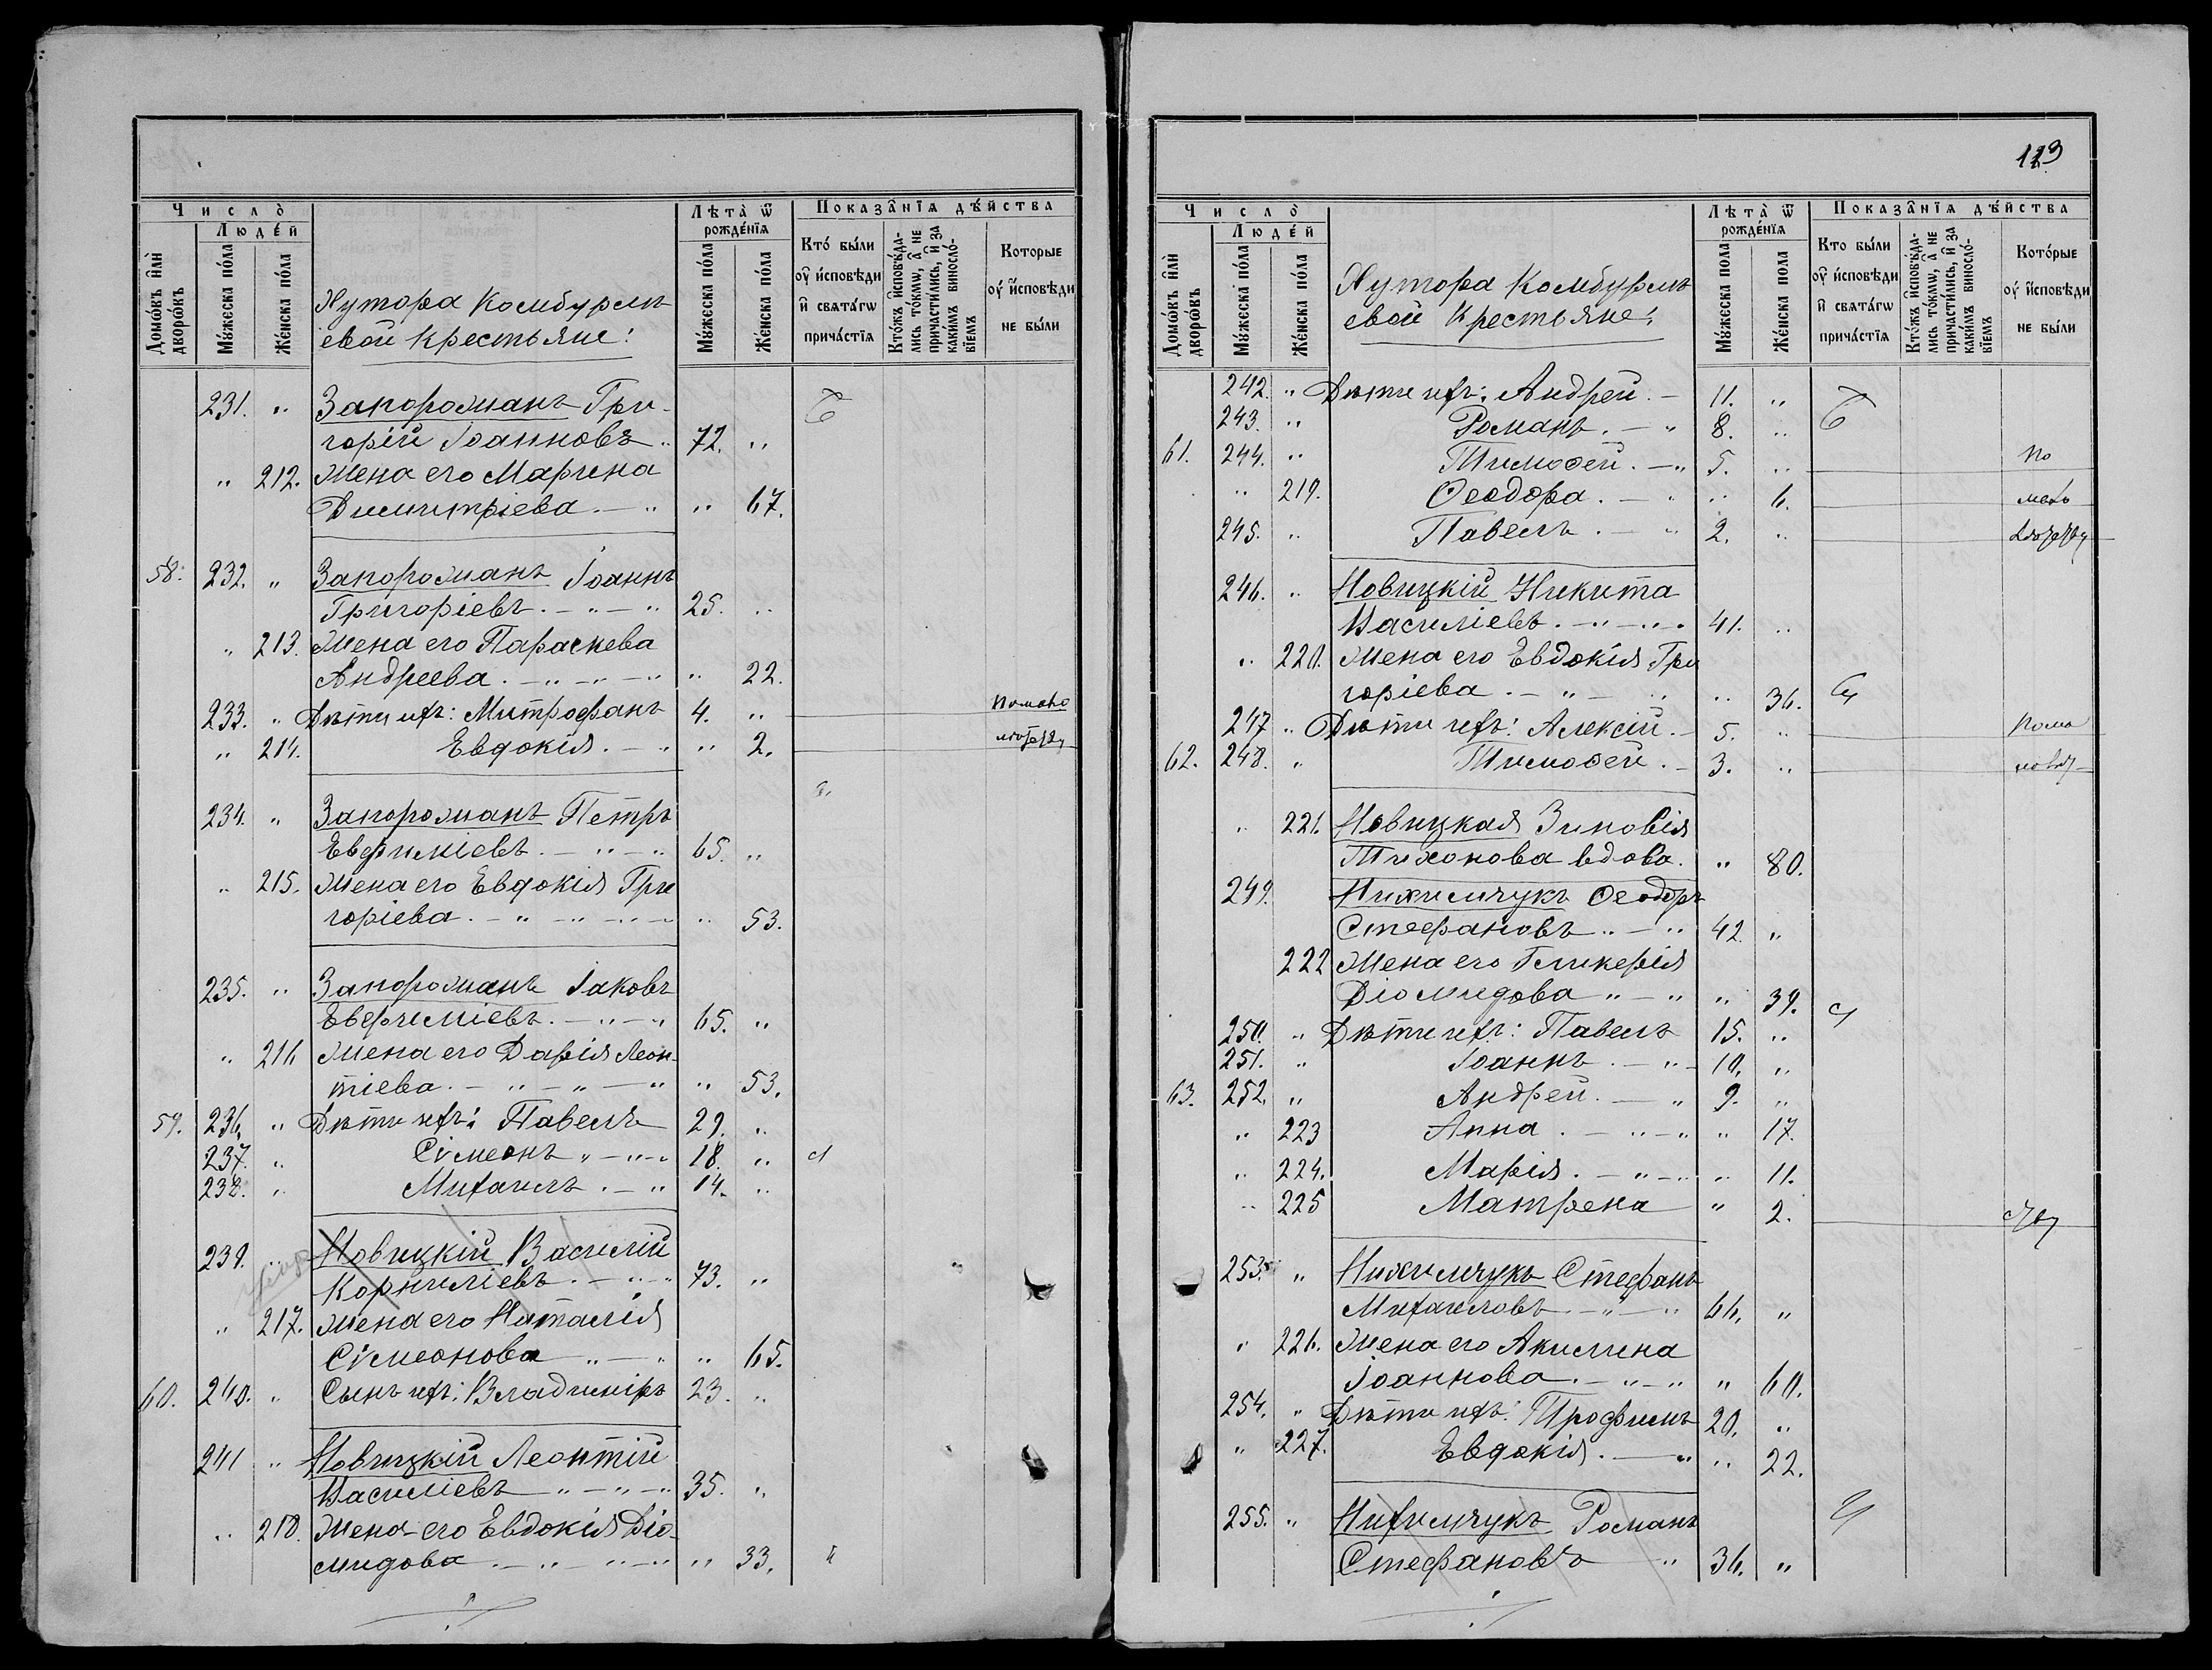 Число̀
Людéй
Домóвъ и҆лѝ дворóвъ
Мꙋ́жеска пóла
Жéнска пóла
Хутора Камбурлі-
евой крестьяне:
Лѣта̀ ѿ рождéнїѧ
Мꙋ́жеска пóла
Жéнска пóла
Показа̂нїѧ дѣ́йства
Ктó бы́ли ᲂу҆̀ и҆́сповѣди и҆ свѧта́гѡ прича́стїѧ
Ктóжъ и҆сповѣ́да-
лись тóкмѡ, а҆ не
причасти́лись, и҆ за
каки́мъ винослó-
вїемъ
Котóрые ᲂу҆̀ и҆́сповѣди не бы́ли
231. " Запорожанъ Гри-
горій Іоанновъ " 72. "
" 212. Жена его Марина
Димитріева. — " " 67.
58. 232. " Запорожанъ Іоаннъ
Григоріевъ. — " — " 25. "
" 213. Жена его Параскева
Андреева. — " — " — " " 22.
233. " Дѣти ихъ: Митрофанъ 4. " По мало
" 214. Евдокія. — " " 2. лѣтству
234. " Запорожанъ Петръ
Евфиміевъ. — " — " 65. "
" 215. Жена его Евдокія Гри
горіева. — " — " — " " 53.
235. " Запорожанъ Іаковъ
Евфиміевъ. — " — " 65. "
" 216 Жена его Дарія Леон-
тіева. — " — " — " " 53.
59. 236. " Дѣти ихъ: Павелъ 29. "
237. " Сѵмеонъ " — " — 18. "
238. " Михаилъ. — " 14. "
239. " Новицкій Василій
Корниліевъ. — " — " 73. "
" 217. Жена его Наталія
Сѵмеонова " — " " 65.
60. 240. " Сынъ ихъ: Владиміръ 23. "
241 " Новицкій Леонтій
Василіевъ — " — " — " 35. "
" 218. Жена его Евдокія Діо-
мидова. — " — " — " " 33. "
123
Число̀
Людéй
Домóвъ и҆лѝ дворóвъ
Мꙋ́жеска пóла
Жéнска пóла
Хутора Камбурлі-
евой крестьяне:
Лѣта̀ ѿ рождéнїѧ
Мꙋ́жеска пола
Жéнска пола
Показа̂нїѧ дѣ́йства
Кто бы́ли ᲂу҆̀ и҆́сповѣди и҆ свѧта́гѡ прича́стїѧ
Ктóжъ и҆сповѣ́да-
лись тóкмѡ, а҆ не
причасти́лись, и҆ за
каки́мъ винослó-
вїемъ
Котóрые ᲂу҆̀ и҆́сповѣди не бы́ли
242. " Дѣти ихъ: Андрей. — 11. "
243. " Романъ. — " 8. "
61. 244. " Тимоѳей. — " 5. " По
" 219. Ѳеодора. — " " 6. мало
245. " Павелъ. — " 2. " лѣтству
246. " Новицкій Никита
Василіевъ. — " — " 41. "
" 220. Жена его Евдокія Гри
горіева. — " — " " 36.
247 " Дѣти ихъ: Алексій. — 5. " По ма
62. 248. " Тимоѳей. — 3. "
" 221. Новицкая Зиновія
Тихонова вдова. " 80.
249. Нихимчукъ Ѳеодоръ
Стефановъ " — " 42. "
222 Жена его Гликерія
Діомидова " — " " 39.
250. " Дѣти ихъ: Павелъ 15. "
251. " Іоаннъ. — " — 10. "
63. 252. " Андрей. — " 9. "
" 223 Анна. — " — " " 17.
" 224. Марія. — " — " " 11.
" 225 Матрена " 2.
253. " Нихимчукъ Стефанъ
Михаиловъ — " — " 66. "
" 226. Жена его Акилина
Іоаннова. — " — " " 60.
254. " Дѣти ихъ: Трофимъ 20. "
" 227. Евдокія. — " " 22.
255. " Нихимчукъ Романъ
Стефановъ " 36. "